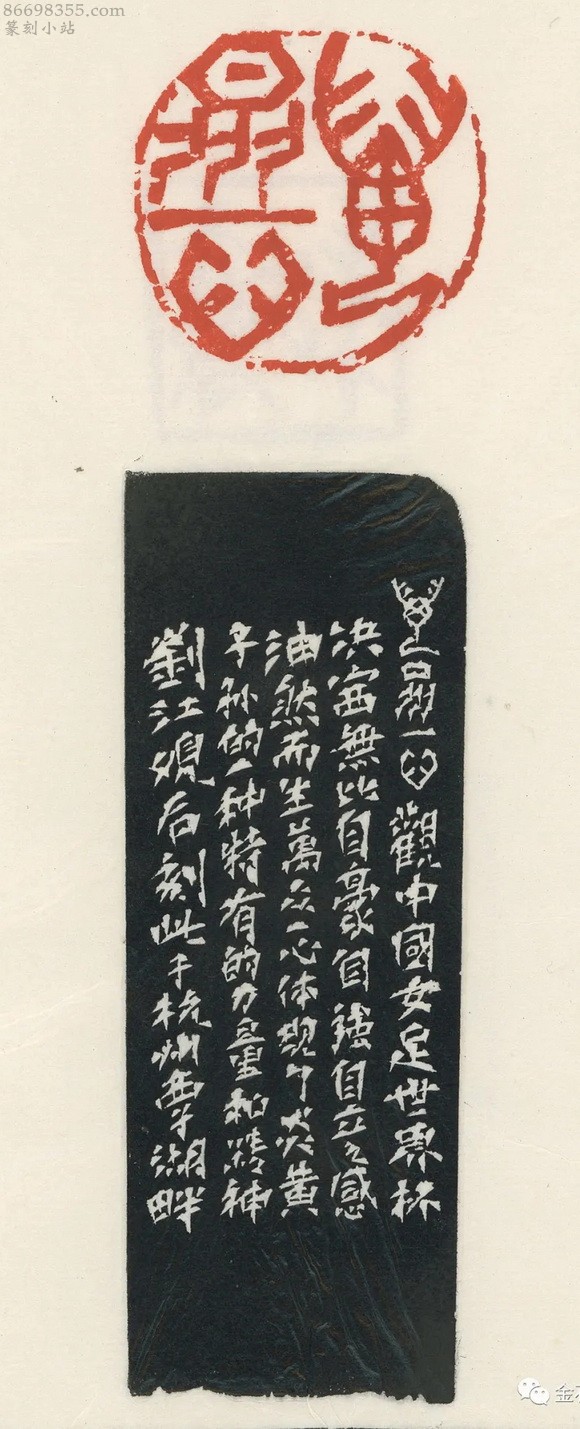 86698355.com
篆刻小站
萬
眾一心
萬眾一心 觀中國女足世界杯
決賽無比自豪自強自立之感
油然而生萬众一心体現了炎黄
子孙的一种特有的力量和精神
劉江觀后刻此于杭州西子湖畔